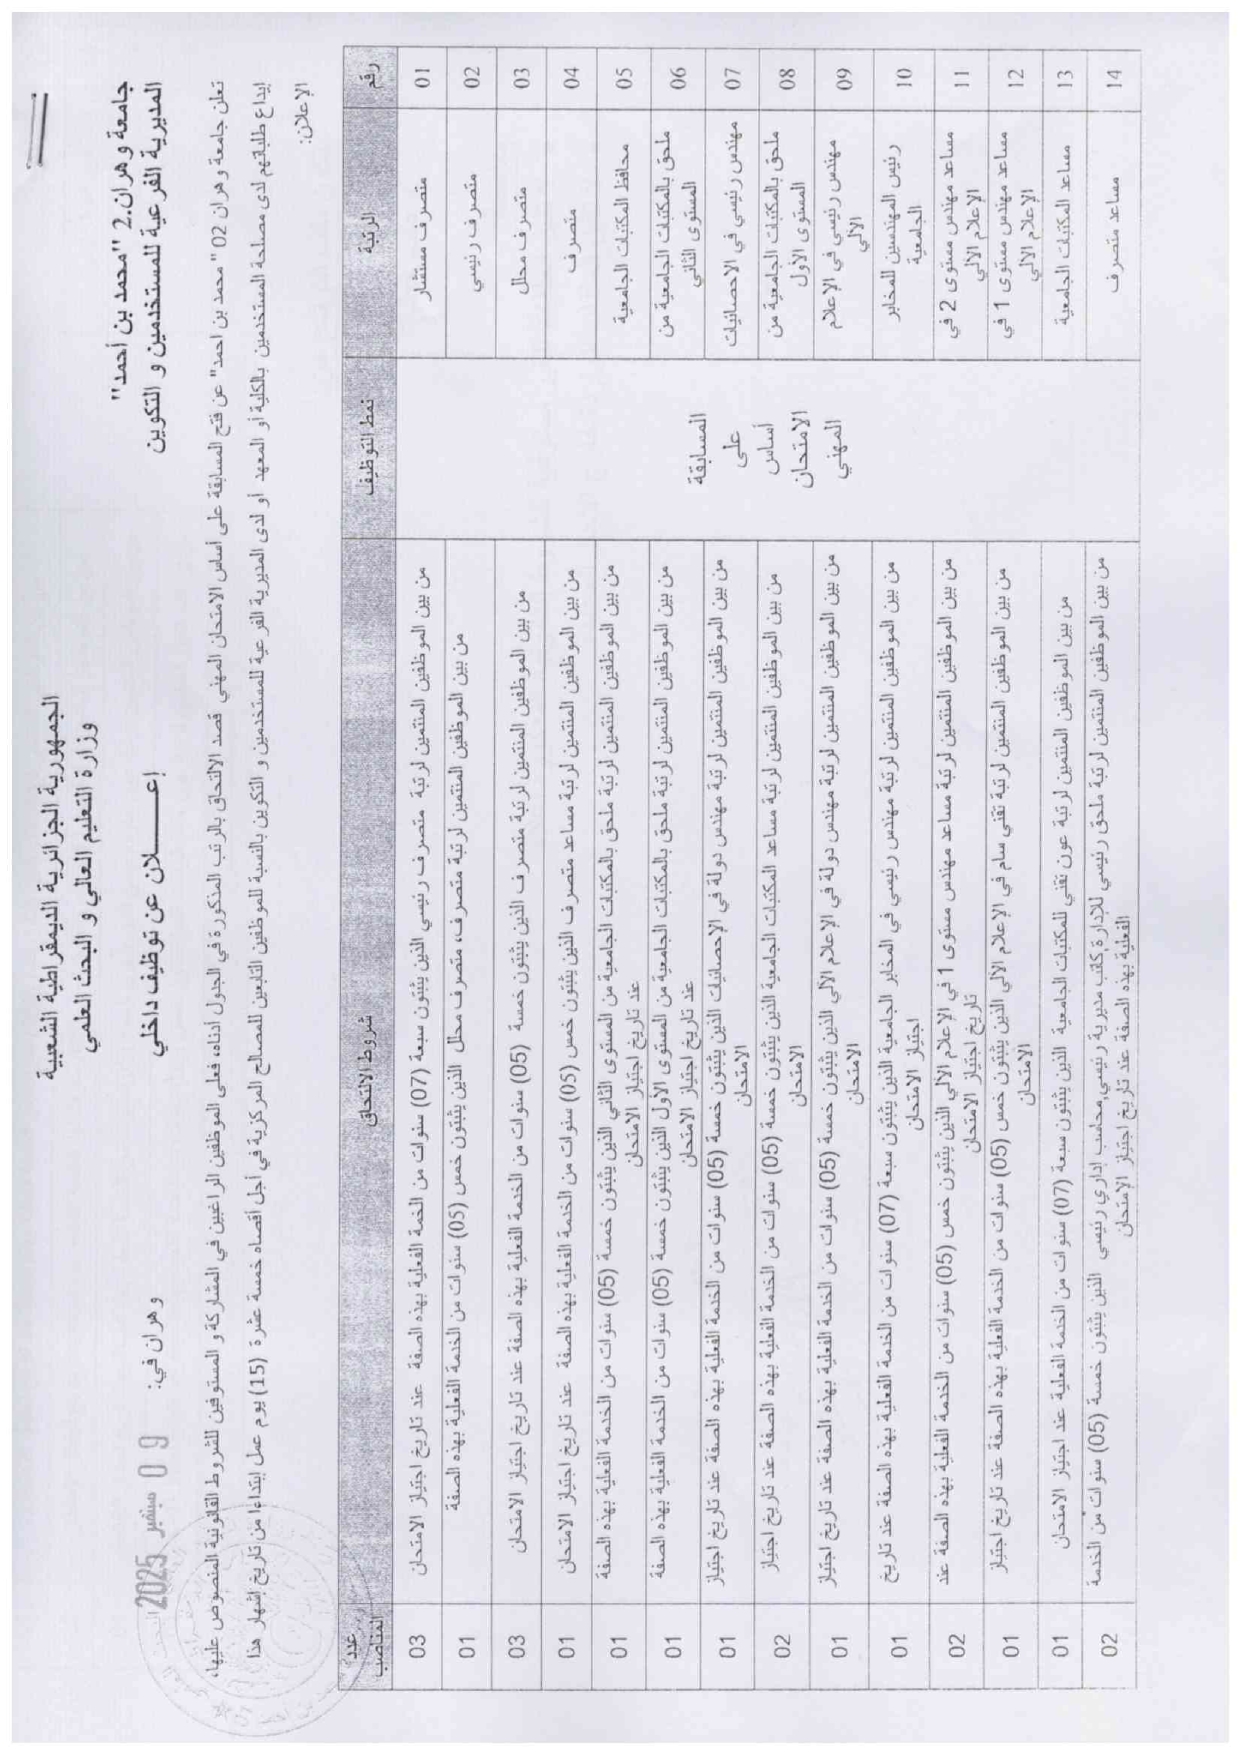 الجمهورية الجزائرية الديمقراطية الشعبية
وزارة التعليم العالي و البحث العلمي
جامعة وهران.2 "محمد بن أحمد"
المديرية الفرعية للمستخدمين و التكوين
وهران في: 0 9 سبتمبر 2025
إعـــــلان عن توظيف داخلي
تعلن جامعة وهران 02 " محمد بن احمد" عن فتح المسابقة على أساس الامتحان المهني قصد الالتحاق بالرتب المذكورة في الجدول أدناه، فعلى الموظفين الراغبين في المشاركة و المستوفين للشروط القانونية المنصوص عليها،
إيداع طلباتهم لدى مصلحة المستخدمين بالكلية أو المعهد أو لدى المديرية الفرعية للمستخدمين و التكوين بالنسبة للموظفين التابعين للمصالح المركزية في أجل أقصاه خمسة عشرة (15) يوم عمل إبتداءا من تاريخ إشهار هذا
الإعلان:
رقم الرتبة نمط التوظيف شروط الالتحاق عدد المناصب
المسابقة
على
أساس
الامتحان
المهني
01 متصرف مستشار من بين الموظفين المنتمين لرتبة متصرف رئيسي الذين يثبتون سبعة (07) سنوات من الخمة الفعلية بهذه الصفة عند تاريخ اجتياز الامتحان 03
02 متصرف رئيسي من بين الموظفين المنتمين لرتبة متصرف، متصرف محلل الذين يثبتون خمس (05) سنوات من الخدمة الفعلية بهذه الصفة 01
03 متصرف محلل من بين الموظفين المنتمين لرتبة متصرف الذين يثبتون خمسة (05) سنوات من الخدمة الفعلية بهذه الصفة عند تاريخ اجتياز الامتحان 03
04 متصرف من بين الموظفين المنتمين لرتبة مساعد متصرف الذين يثبتون خمس (05) سنوات من الخدمة الفعلية بهذه الصفة عند تاريخ اجتياز الامتحان 01
05 محافظ المكتبات الجامعية من بين الموظفين المنتمين لرتبة ملحق بالمكتبات الجامعية من المستوى الثاني الذين يثبتون خمسة (05) سنوات من الخدمة الفعلية بهذه الصفة
عند تاريخ اجتياز الامتحان 01
06 ملحق بالمكتبات الجامعية من
المستوى الثاني من بين الموظفين المنتمين لرتبة ملحق بالمكتبات الجامعية من المستوى الأول الذين يثبتون خمسة (05) سنوات من الخدمة الفعلية بهذه الصفة
عند تاريخ اجتياز الامتحان 01
07 مهندس رئيسي في الاحصائيات من بين الموظفين المنتمين لرتبة مهندس دولة في الإحصائيات الذين يثبتون خمسة (05) سنوات من الخدمة الفعلية بهذه الصفة عند تاريخ اجتياز
الامتحان 01
08 ملحق بالمكتبات الجامعية من
المستوى الأول من بين الموظفين المنتمين لرتبة مساعد المكتبات الجامعية الذين يثبتون خمسة (05) سنوات من الخدمة الفعلية بهذه الصفة عند تاريخ اجتياز
الامتحان 02
09 مهندس رئيسي في الإعلام
الآلي من بين الموظفين المنتمين لرتبة مهندس دولة في الإعلام الآلي الذين يثبتون خمسة (05) سنوات من الخدمة الفعلية بهذه الصفة عند تاريخ اجتياز
الامتحان 01
10 رئيس المهندسين للمخابر
الجامعية من بين الموظفين المنتمين لرتبة مهندس رئيسي في المخابر الجامعية الذين يثبتون سبعة (07) سنوات من الخدمة الفعلية بهذه الصفة عند تاريخ
اجتياز الامتحان 01
11 مساعد مهندس مستوى 2 في
الإعلام الالي من بين الموظفين المنتمين لرتبة مساعد مهندس مستوى 1 في الإعلام الالي الذين يثبتون خمس (05) سنوات من الخدمة الفعلية بهذه الصفة عند
تاريخ اجتياز الامتحان 02
12 مساعد مهندس مستوى 1 في
الإعلام الالي من بين الموظفين المنتمين لرتبة تقني سام في الإعلام الالي الذين يثبتون خمس (05) سنوات من الخدمة الفعلية بهذه الصفة عند تاريخ اجتياز
الامتحان 01
13 مساعد المكتبات الجامعية من بين الموظفين المنتمين لرتبة عون تقني للمكتبات الجامعية الذين يثبتون سبعة (07) سنوات من الخدمة الفعلية عند اجتياز الامتحان 01
14 مساعد متصرف من بين الموظفين المنتمين لرتبة ملحق رئيسي للإدارة,كاتب مديرية رئيسي,محاسب إداري رئيسي الذين يثبتون خمسة (05) سنوات من الخدمة
الفعلية بهذه الصفة عند تاريخ اجتياز الامتحان 02